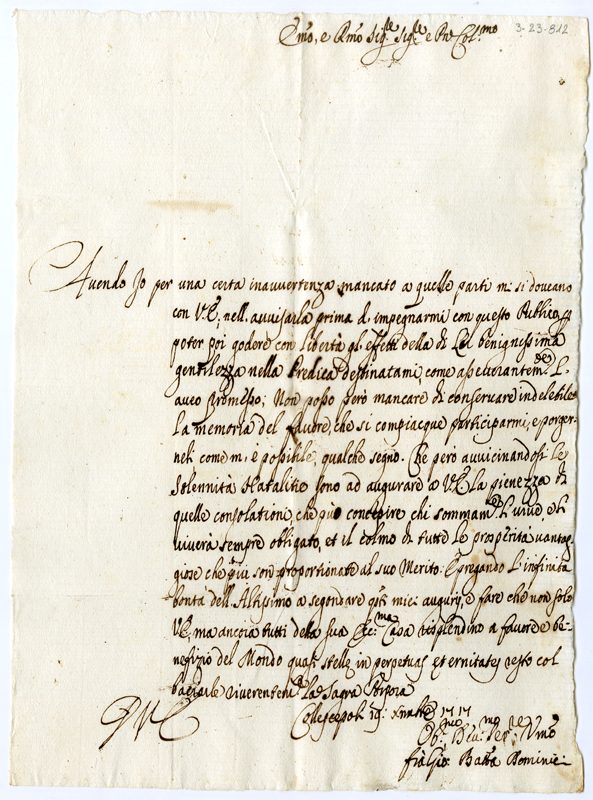 Em̃o, e Rm̃o Sigʳᵉ Sigʳᵉ e Pne Col.ᵐᵒ
3-23-812
Auendo Jo per una certa inauuertenza mancato a quelle parti mi si doueano
con VE, nell'auuisarla prima d'impegnarmi con questo Publico, p
poter poi godere con libertà gl'effetti della di Lei benignissima
gentilezza nella Predica destinatami, come assecurantemᵗᵉ L'
aueo promesso; Non posso però mancare di conseruare indelebile
La memoria del fauore, che si compiacque participarmi, e porger-
neli come m'è possibile, qualche segno. Che però auuicinandosi le
Solennità Natalitie sono ad augurare a VE la pienezza di
quelle consolationi, che può concepire chi sommamᵗᵉ Li uiue, e Li
uiuerà sempre obligato, et il colmo di tutte le prosperità uantag-
giose che più son proportionate al suo Merito: E pregando l'infinita
bontà dell'Altissimo a segondare qsti miei augurij, e fare che non solo
VE, ma ancora tutti della sua Ecc:ᵐᵃ Casa risplendino a fauore e be-
nefizio del Mondo quasi stelle in perpetuas eternitates resto col
bacciarle riuerentemᵗᵉ La Sagra Porpora
Collescepoli 19: Xmbre 1717
D VE
Obᵐᵒ Diu:ᵐᵒ Serʳᵉ Vmo
fra Gio: Batta Dominici